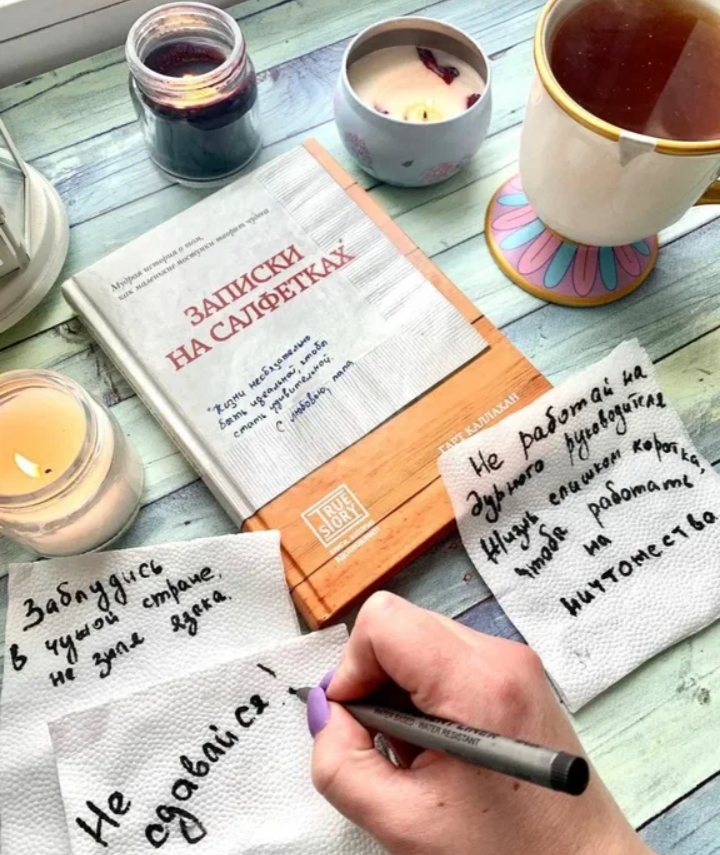 Мудрая история о том,
как маленькие поступки творят чудеса
ЗАПИСКИ
НА САЛФЕТКАХ
"Жизни необязательно
быть идеальной, чтобы
стать удивительной.
С любовью, папа
ГАРТ КАЛЛАХАН
TRUE
STORY
Не работай на
дурного руководителя
Жизнь слишком коротка,
чтобы работать
на
ничтожество
Заблудись
в чужой стране,
не зная языка.
Не
сдавайся!
WATER BASED · WATER RESISTANT